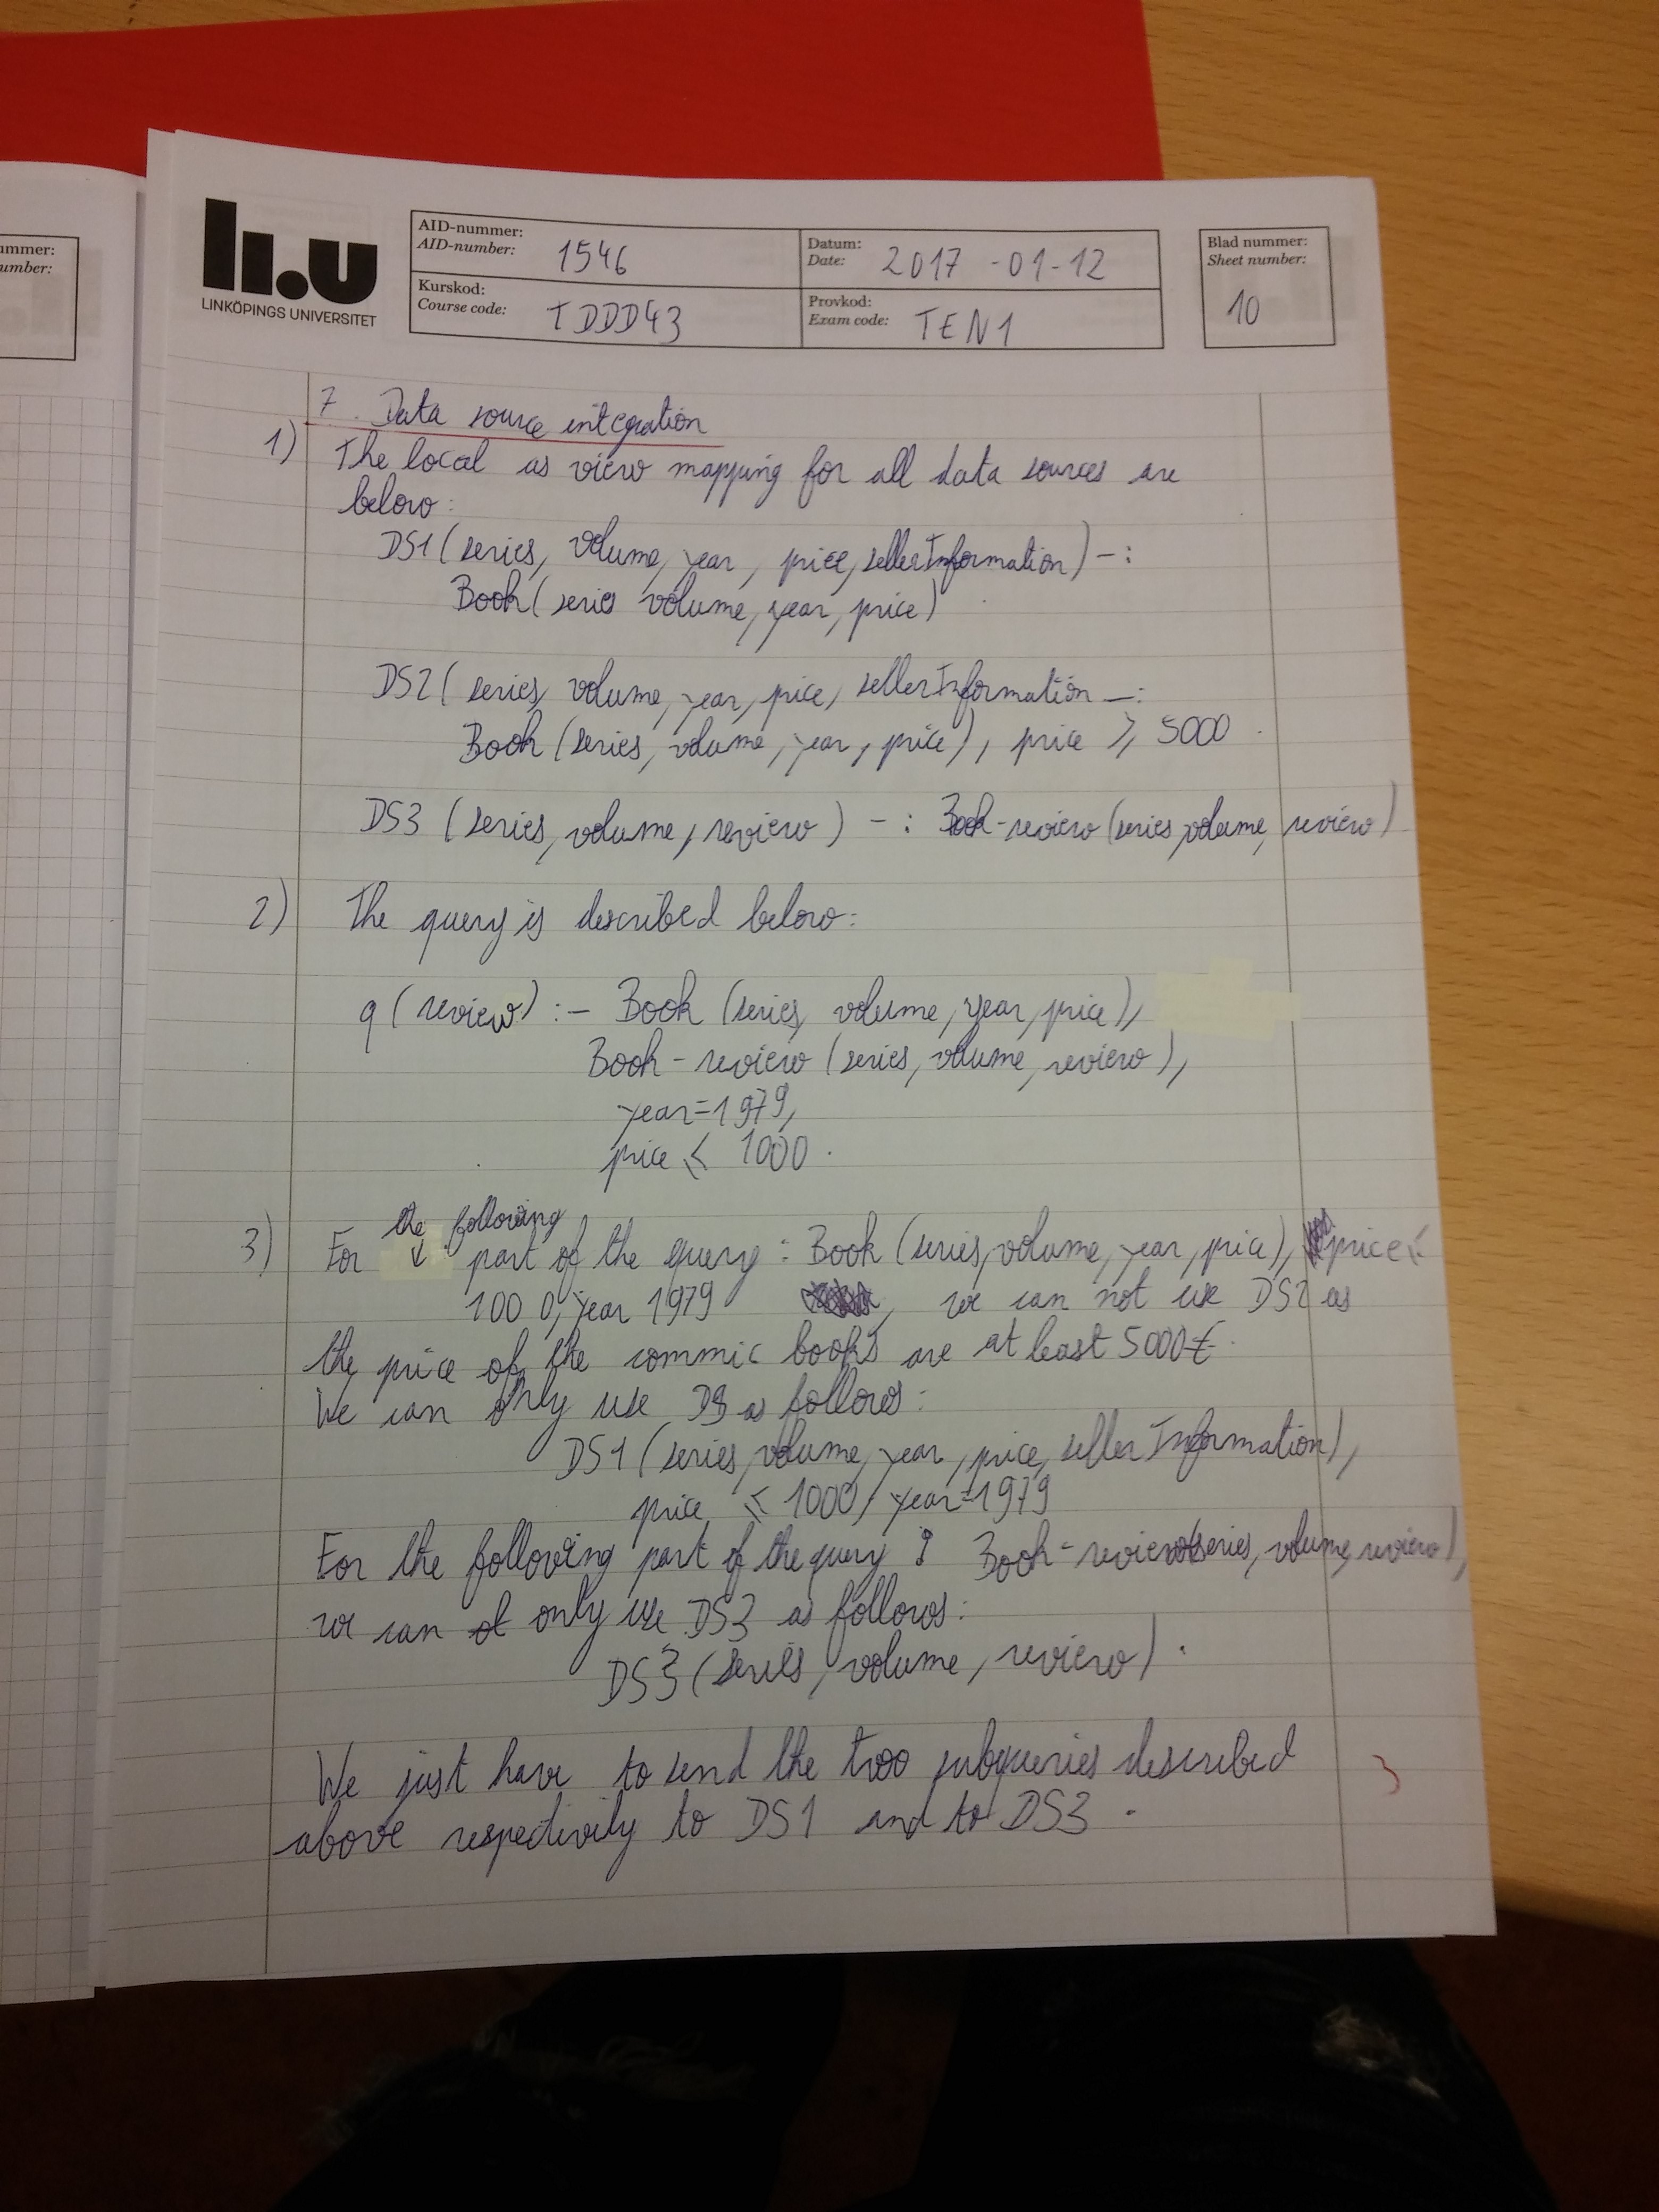 ummer:
umber:
li.u
LINKÖPINGS UNIVERSITET
AID-nummer:
AID-number: 1546
Datum:
Date: 2017-01-12
Kurskod:
Course code: TDDD43
Provkod:
Exam code: TEN1
Blad nummer:
Sheet number:
10
7. Data source integration
1) The local as view mapping for all data sources are
below:
DS1(series, volume, year, price, sellerInformation) -:
Book(series volume, year, price)
DS2(series, volume, year, price, sellerInformation -:
Book (series, volume, year, price), price ≥ 5000.
DS3 (series, volume, review) -: Book-review (series, volume, review)
2) The query is described below:
q (review) :- Book (series, volume, year, price),
Book-review (series, volume, review),
year=1979,
price ≤ 1000.
the following
3) For ↓ part of the query: Book (series, volume, year, price), price ≤
1000, year 1979, we can not use DS2 as
the price of the commic books are at least 5000€.
We can only use as follows:
DS1 (series, volume, year, price, sellerInformation),
price ≤ 1000, year=1979
For the following part of the query: Book-review(series, volume, review),
we can only use DS3 as follows:
DS3 (series, volume, review).
We just have to send the two subqueries described
above respectivily to DS1 and to DS3.
3